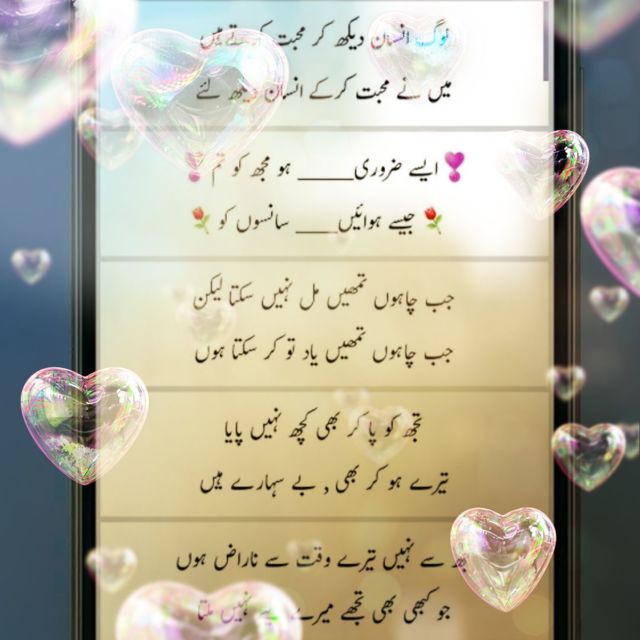 لوگ انسان دیکھ کر محبت کرتے ہیں
میں نے محبت کرکے انسان دیکھ لئے
ایسے ضروری____ ہو مجھ کو تم
جیسے ہوائیں___ سانسوں کو
جب چاہوں تمھیں مل نہیں سکتا لیکن
جب چاہوں تمھیں یاد تو کر سکتا ہوں
تجھ کو پا کر بھی کچھ نہیں پایا
تیرے ہو کر بھی , بے سہارے ہیں
سے نہیں تیرے وقت سے ناراض ہوں
جو کبھی بھی تجھے میرے نہیں ملتا